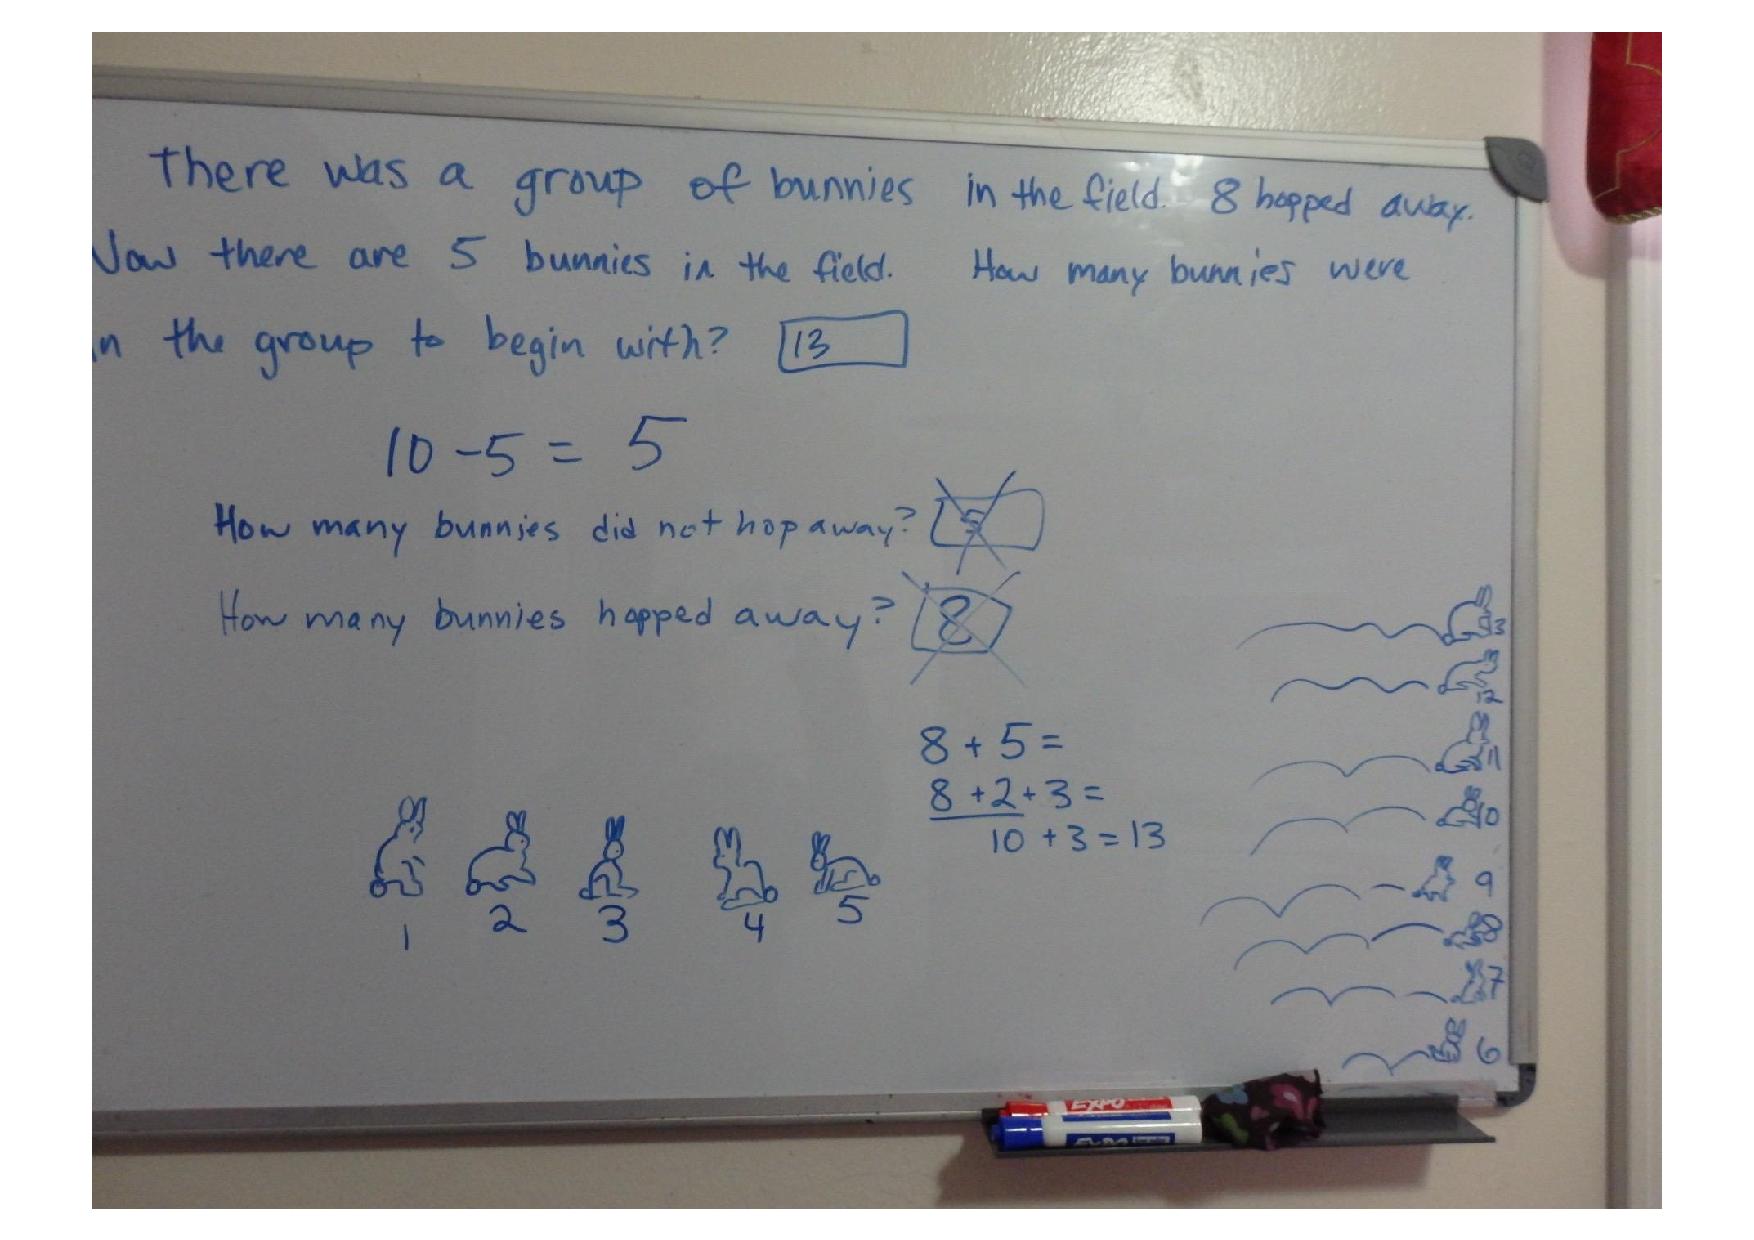 There was a group of bunnies in the field. 8 hopped away.
Now there are 5 bunnies in the field. How many bunnies were
in the group to begin with? 13
10 - 5 = 5
How many bunnies did not hop away? 5
How many bunnies hopped away? 8
8 + 5 =
8 + 2 + 3 =
10 + 3 = 13
1 2 3 4 5
13
12
11
10
9
8
7
6
EXPO
EXPO